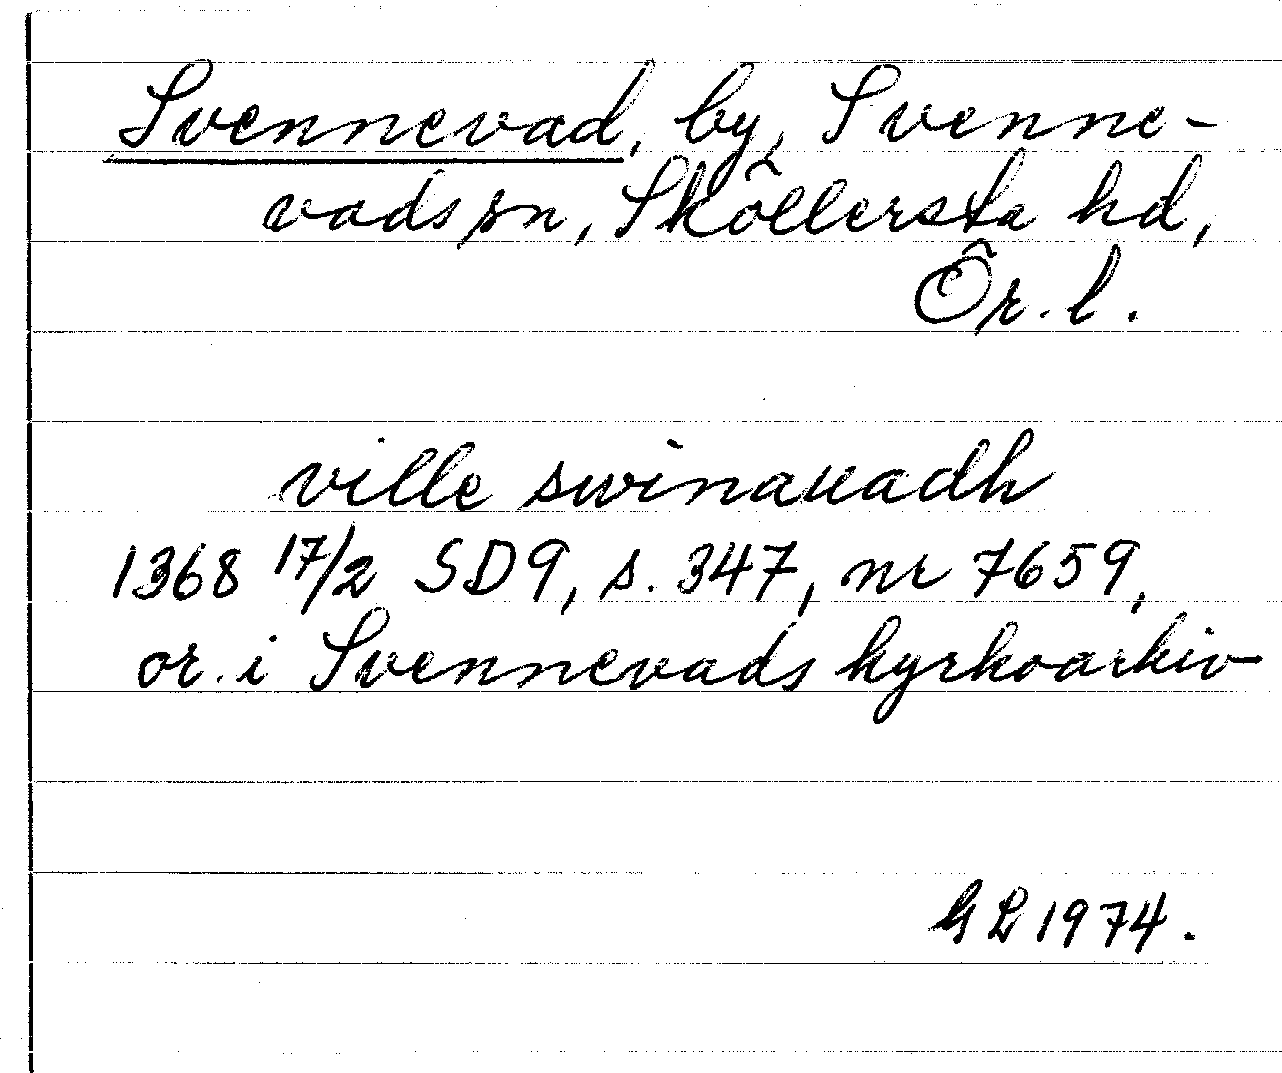 Svennevad, by, Svenne-
vads sn, Sköllersta hd,
Ör. l.
ville swinauadh
1368 17/2 SD9, s. 347, nr 7659,
or. i Svennevads kyrkoarkiv
GL 1974.